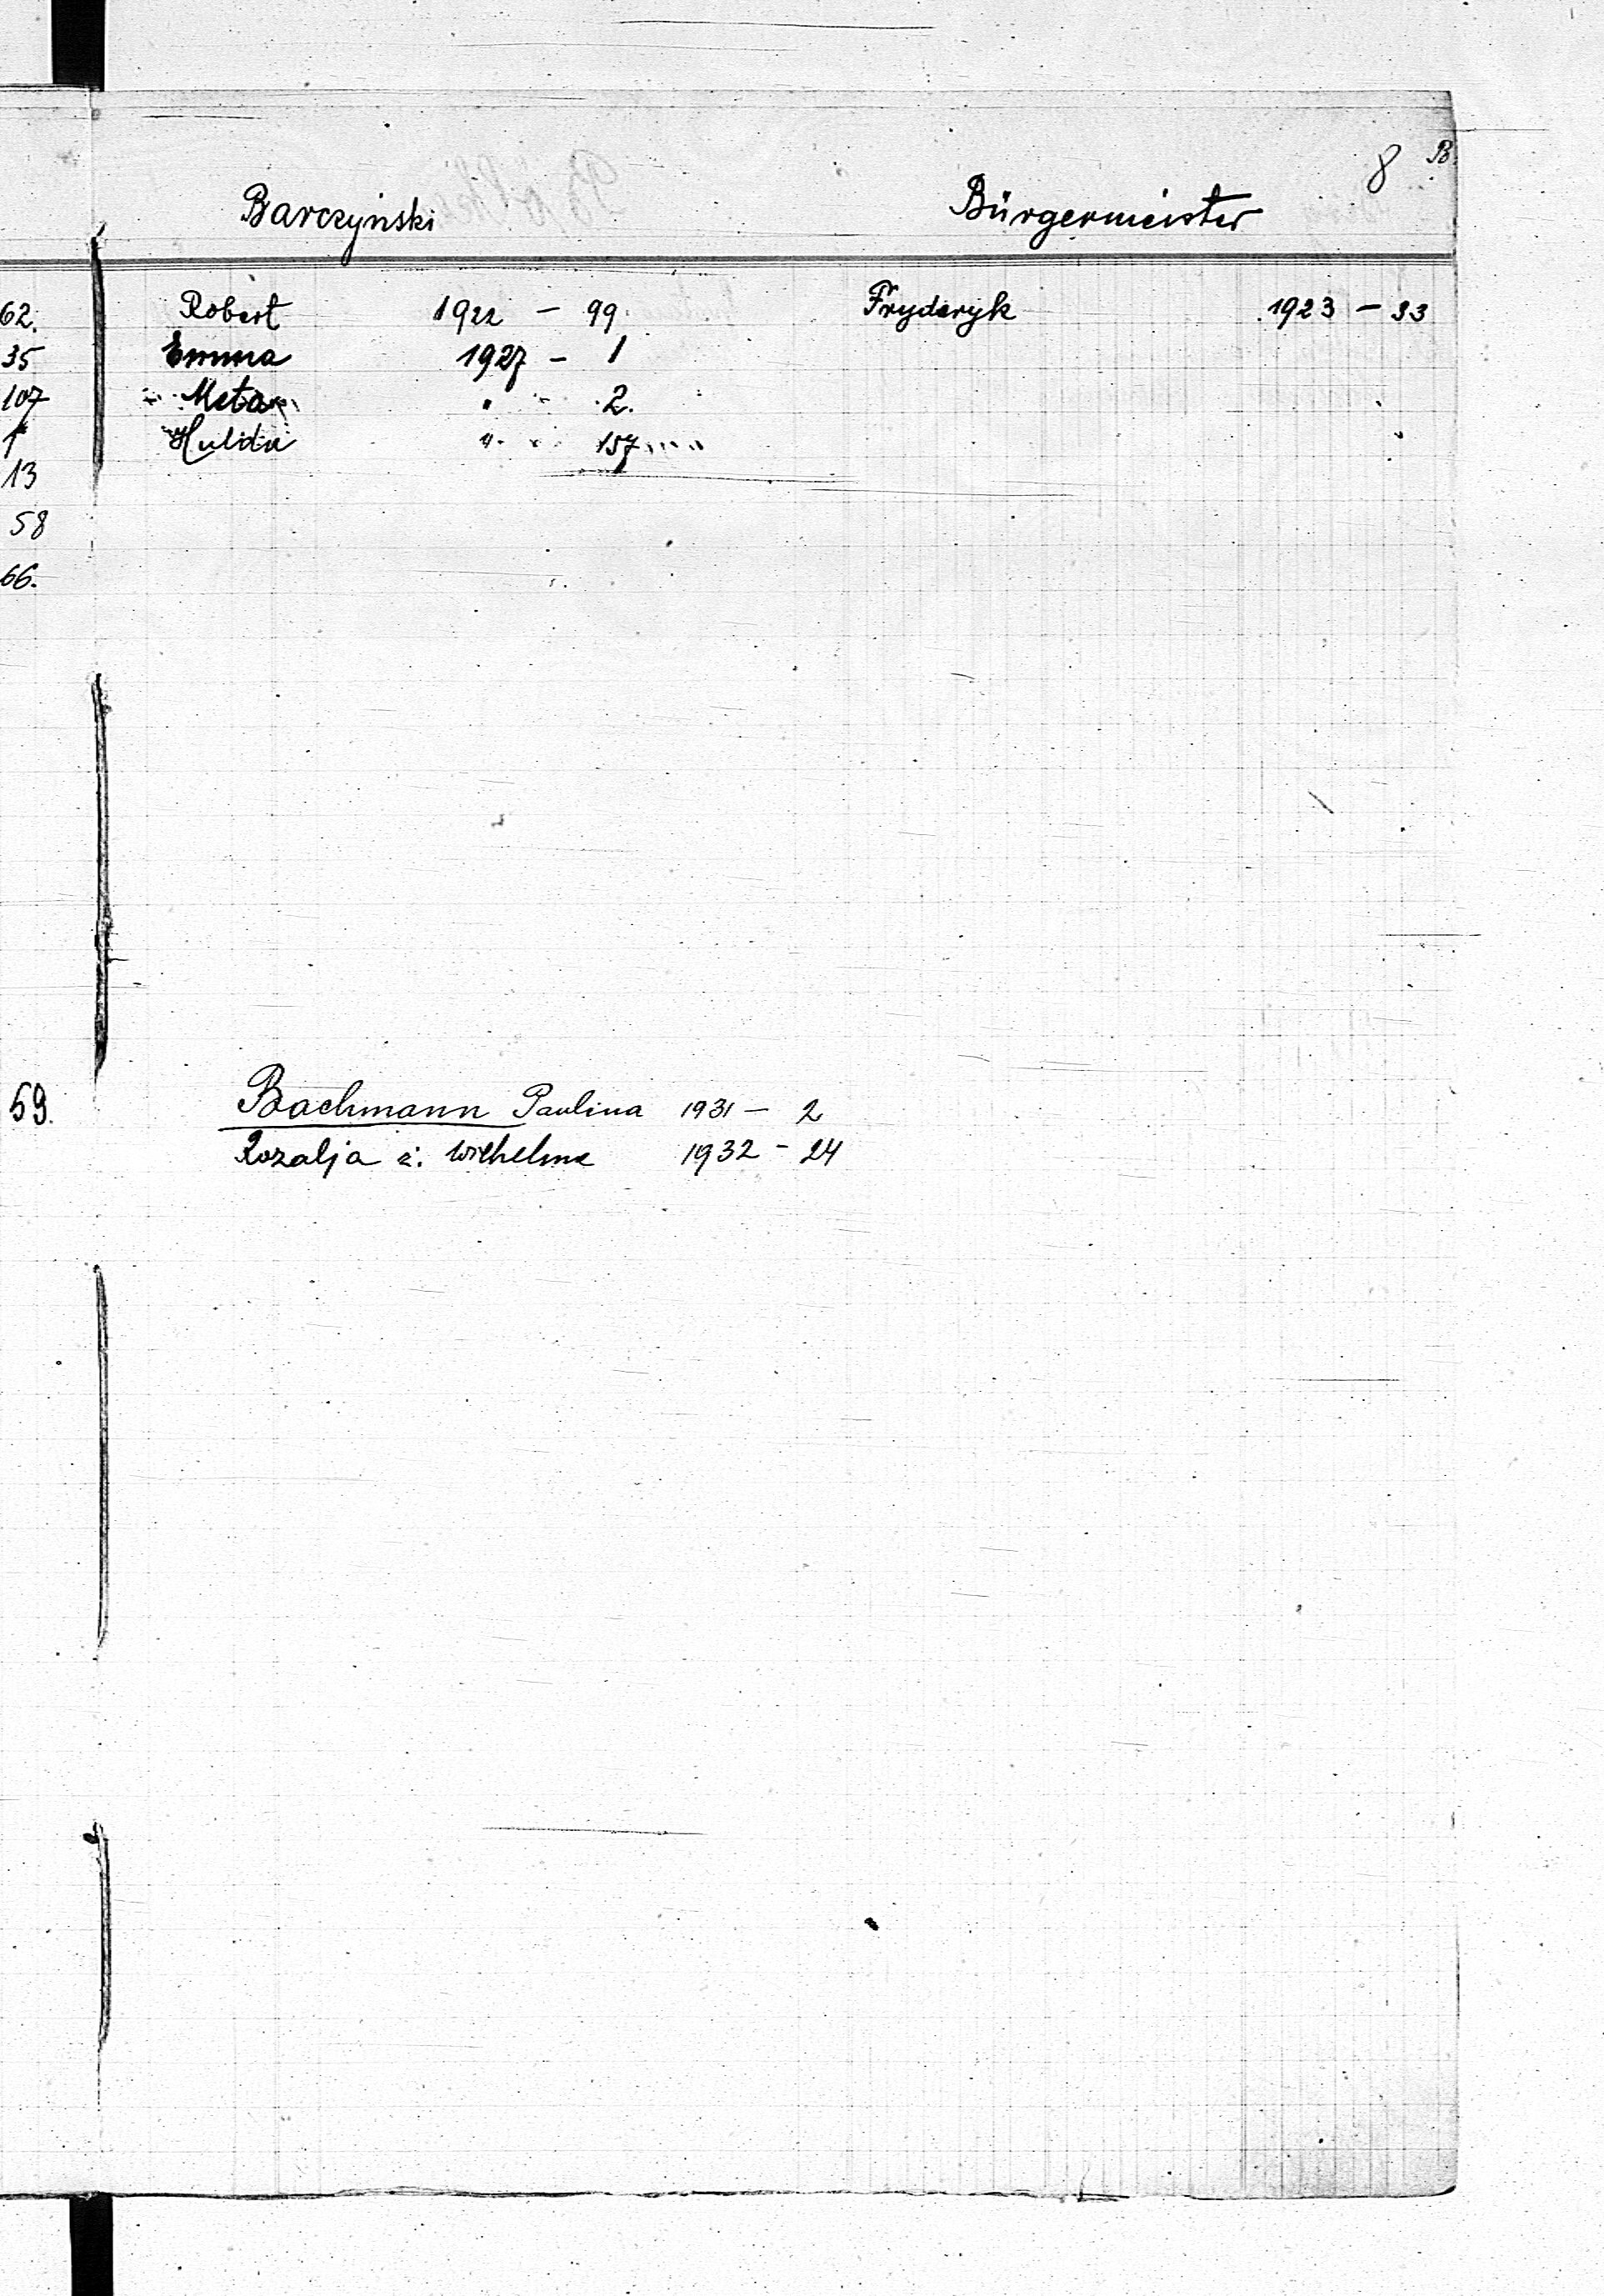 8 B.
Barczyński Bürgermeister
62. Robert 1922 - 99. Fryderyk 1923 - 33
35 Emma 1927 - 1
107 Meta " - 2.
1 Hulda " 157
13
58
66.
59. Bachmann Paulina 1931 - 2
Rozalja ż. Wilhelma 1932 - 24